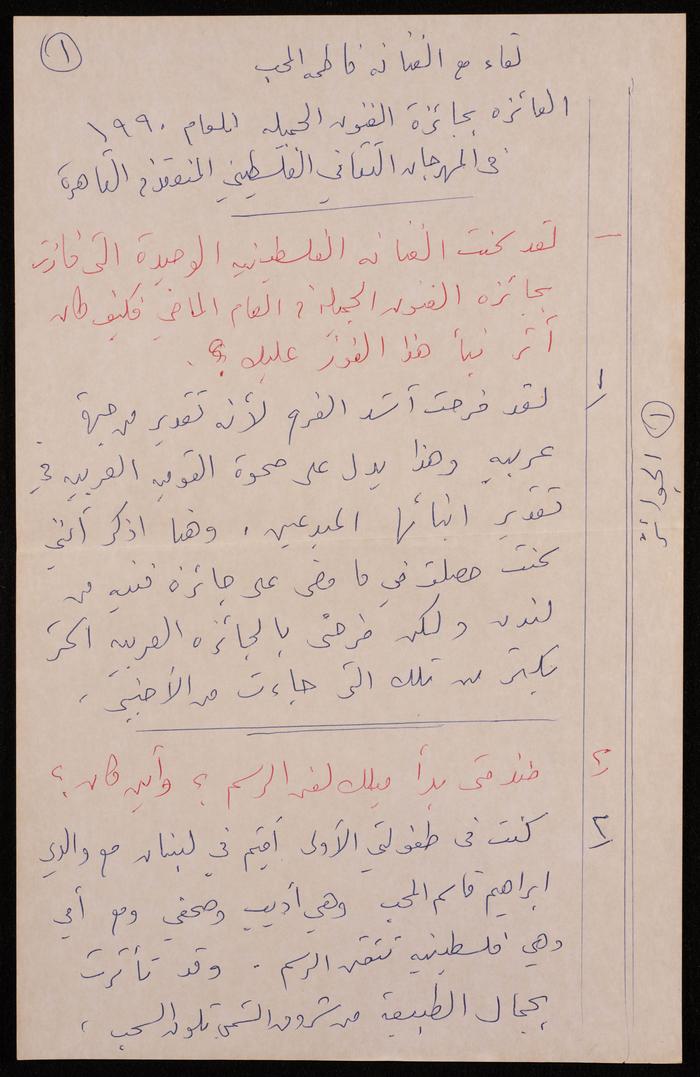 ١
لقاء مع الفنانه فاطمه المحب
الفائزه بجائزة الفنون الجميله للعام ١٩٩٠
في المهرجان الثقافي الفلسطيني المنعقد في القاهرة
١ لقد كنت الفنانه الفلسطينيه الوحيدة التي فازت
بجائزه الفنون الجميلة في العام الماضي فكيف كان
أثر نبأ هذا الفوز عليك ؟.
١ لقد فرحت أشد الفرح لأنه تقدير من جهة
عربيه وهذا يدل على صحوة القوميه العربيه في
تقدير ابنائها المبدعين ، وهنا اذكر أنني
كنت حصلت في ما مضى على جائزه فنيه من
لندن ولكن فرحتي بالجائزه العربيه اكثر
بكثير من تلك التي جاءت من الأجنبي .
٢ منذ متى بدأ ميلك لفن الرسم ؟ وأين كان ؟
٢ كنت في طفولتي الأولى أقيم في لبنان مع والدي
ابراهيم قاسم المحب وهو أديب وصحفي ومع أمي
وهي فلسطينيه تتقن الرسم . وقد تأثرت
بجمال الطبيعة من شروق الشمس تلون السحب ،
١ الجوائز